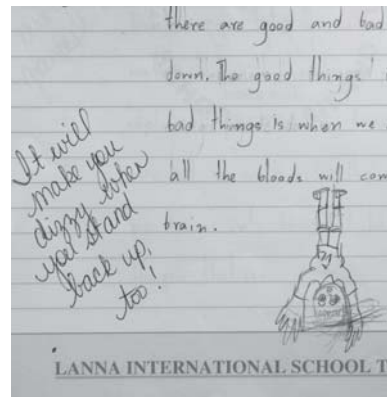 there are good and bad
down. The good things'
bad things is when we
all the bloods will com
brain.
It will
make you
dizzy when
you stand
back up,
too!
LANNA INTERNATIONAL SCHOOL T